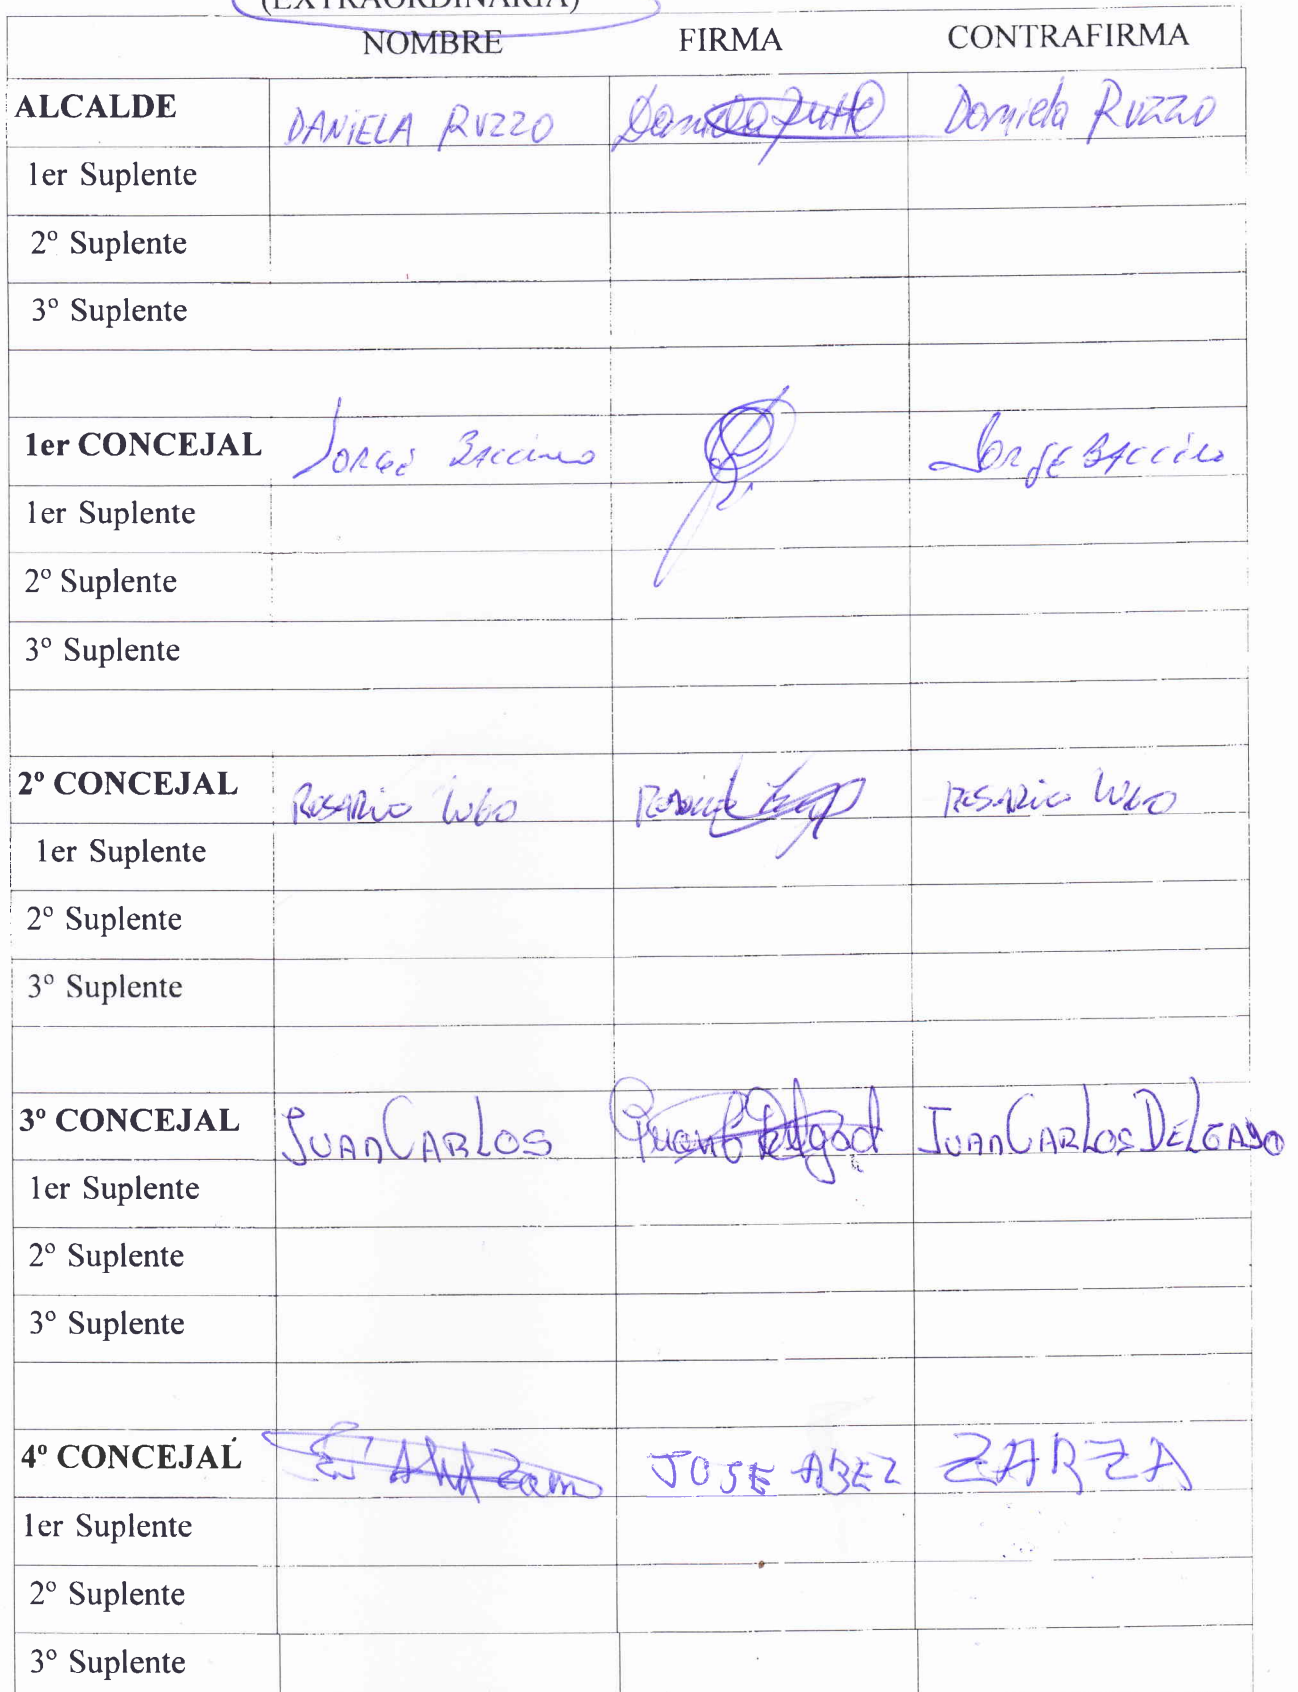 (EXTRAORDINARIA)
NOMBRE FIRMA CONTRAFIRMA
ALCALDE DANIELA RUZZO Daniela Ruzzo
1er Suplente
2º Suplente
3º Suplente
1er CONCEJAL JORGE BACCINO JORGE BACCINO
1er Suplente
2º Suplente
3º Suplente
2º CONCEJAL ROSARIO LUGO ROSARIO LUGO
1er Suplente
2º Suplente
3º Suplente
3º CONCEJAL JUAN CARLOS JUAN CARLOS DELGADO
1er Suplente
2º Suplente
3º Suplente
4º CONCEJAL JOSE ABEZ ZARZA
1er Suplente
2º Suplente
3º Suplente